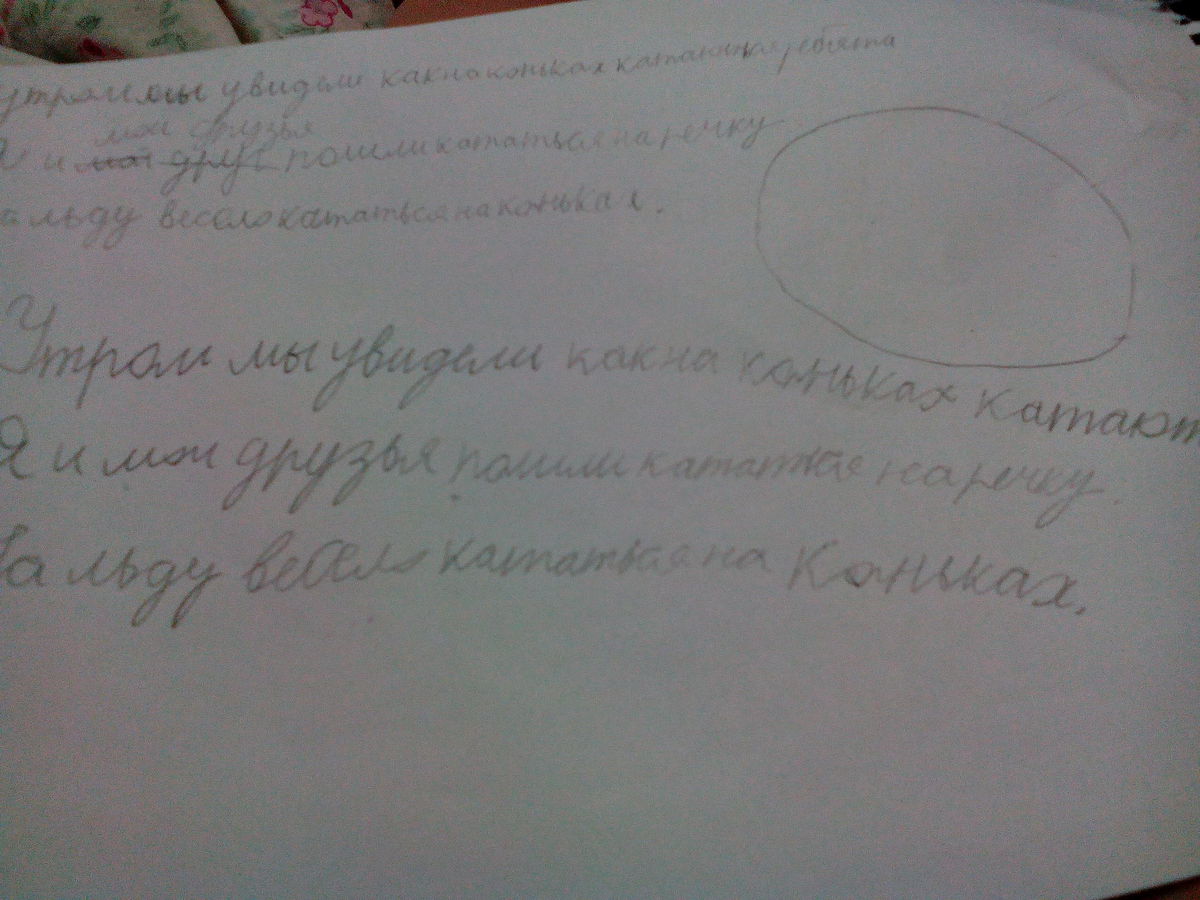 утром мы увидели как на коньках катаются ребята
мои друзья
Я и мой друг пошли кататься на речку
а льду весело кататься на коньках.
Утром мы увидели как на коньках катают
Я и мои друзья пошли кататься на речку.
На льду весело кататься на Коньках.